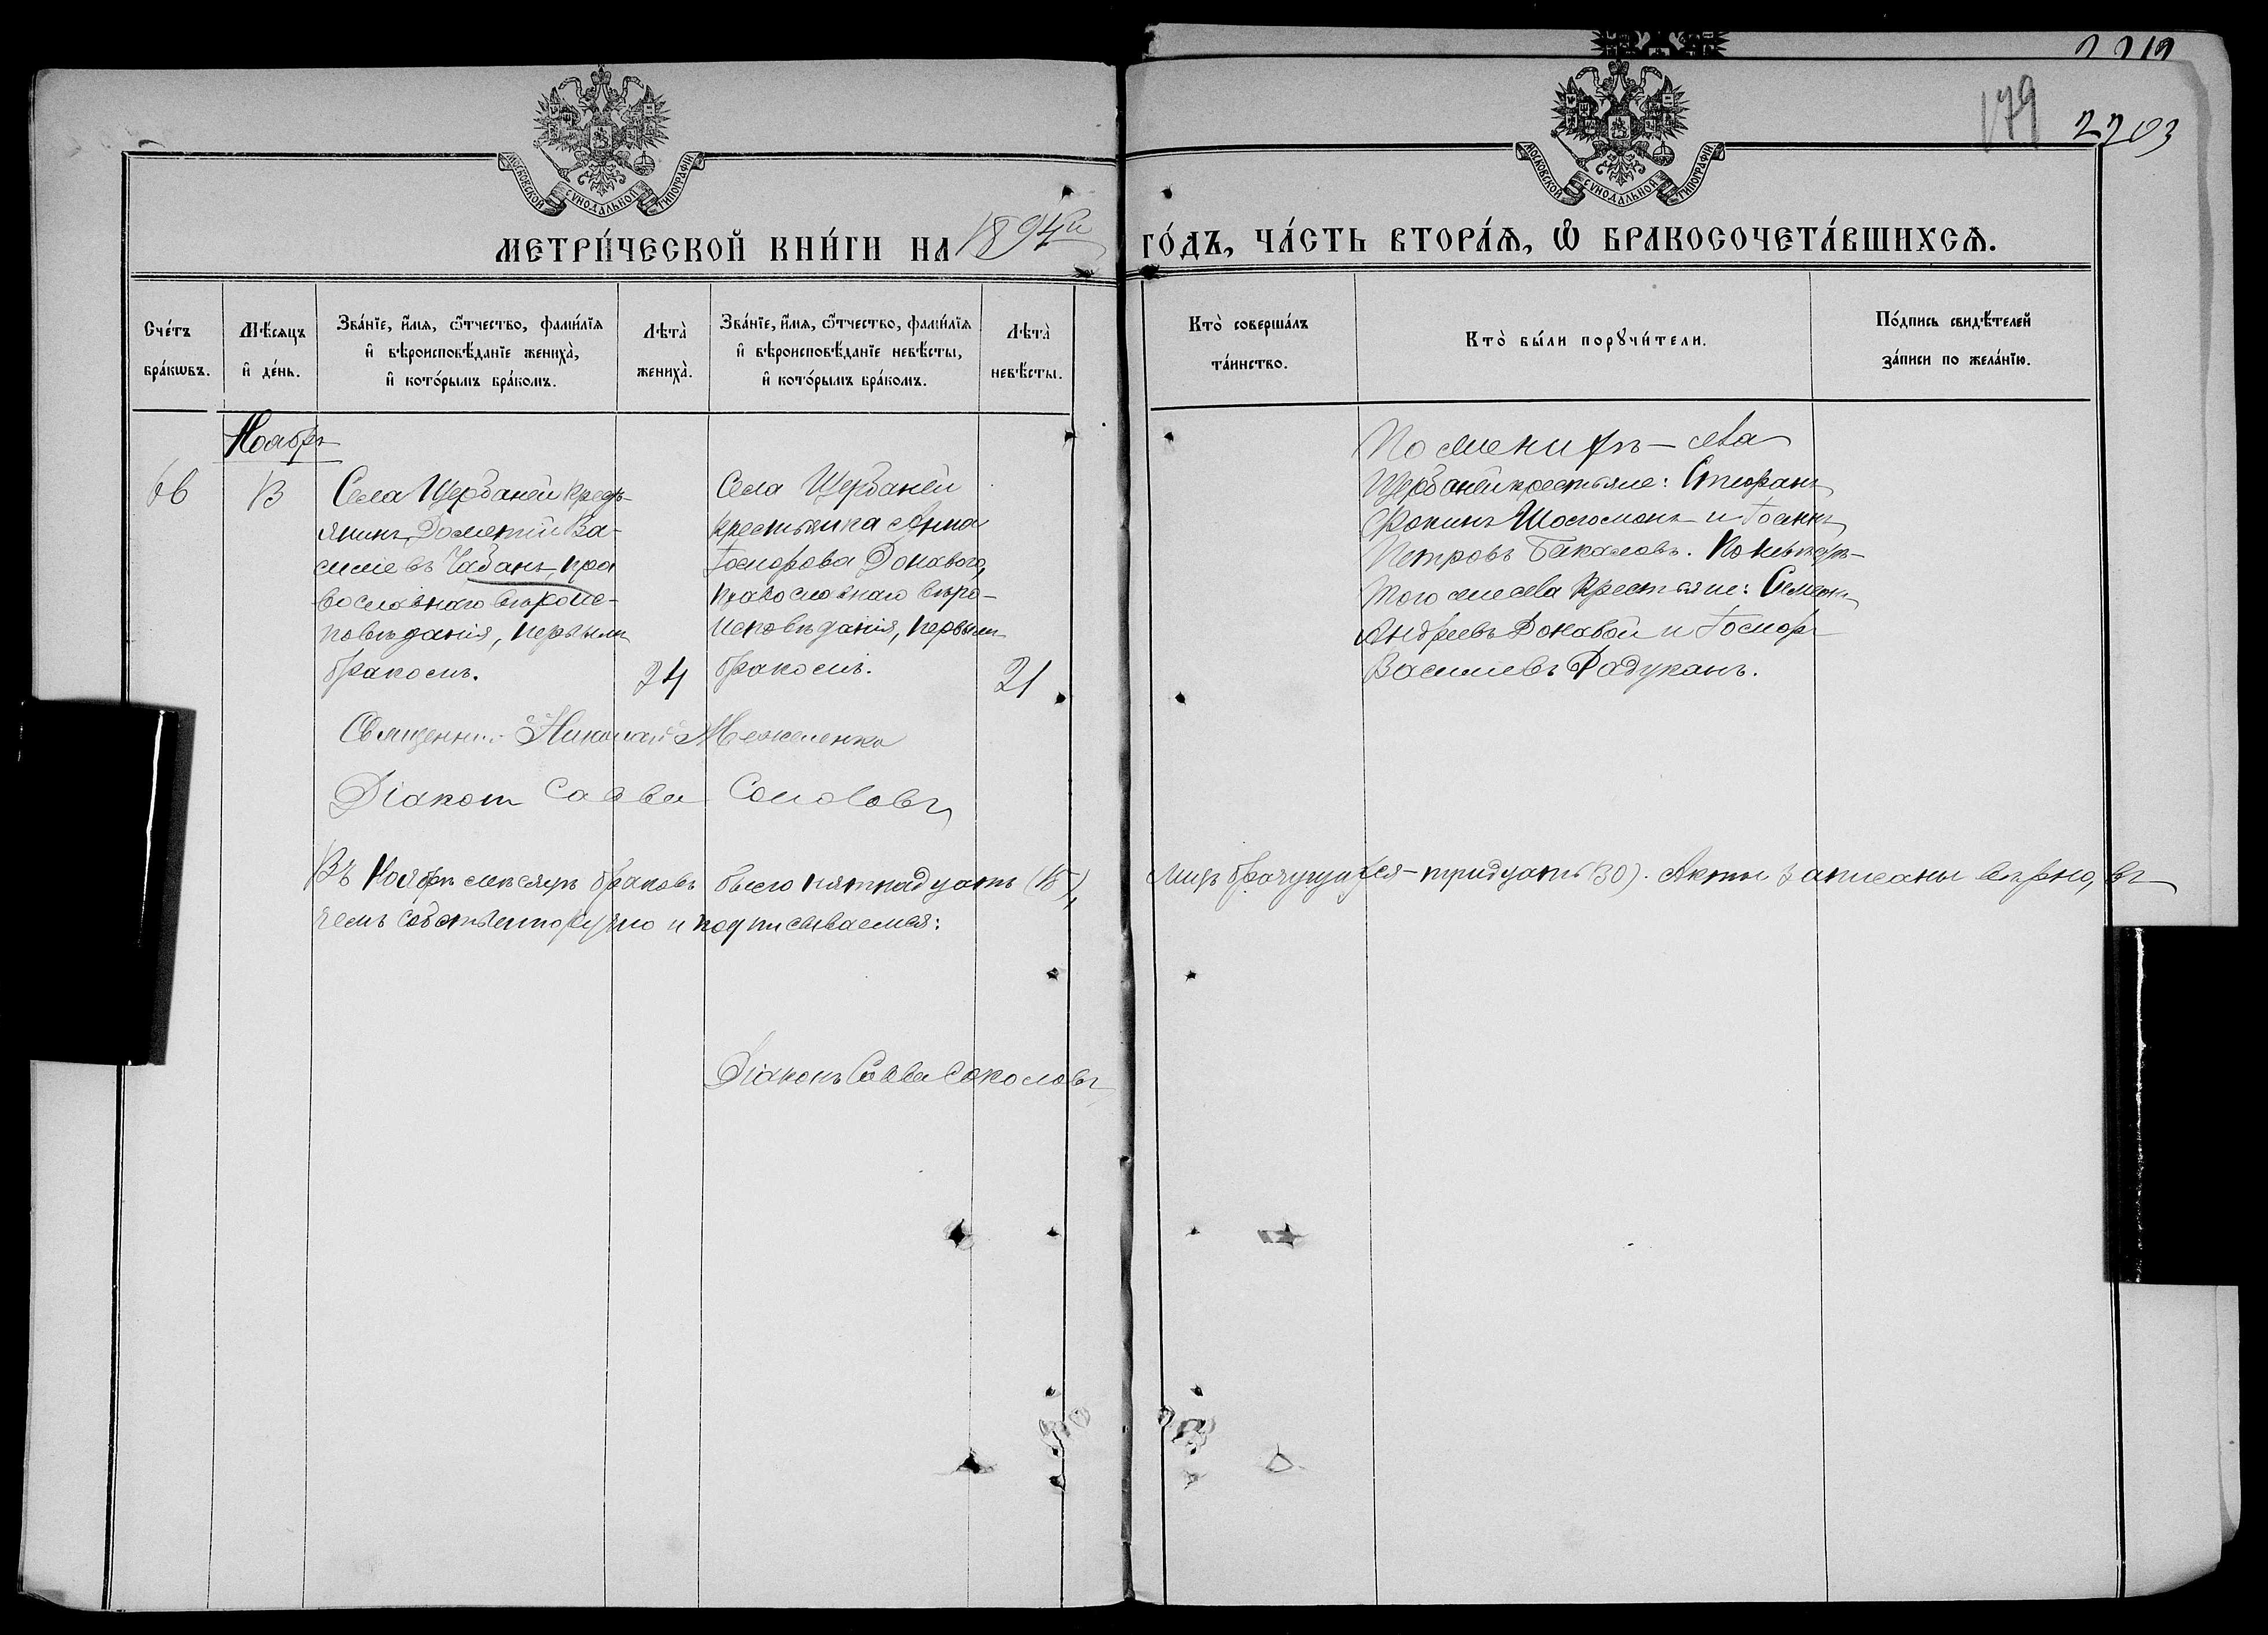 2203
179
МОСКОВСКОЙ СѴНОДАЛЬНОЙ ТИПОГРАФІИ
МОСКОВСКОЙ СѴНОДАЛЬНОЙ ТИПОГРАФІИ
МЕТРИ́ЧЕСКОЙ КНИ́ГИ НА 1894й ГО́ДЪ, ЧА́СТЬ ВТОРА́Ѧ, Ѽ БРАКОСОЧЕТА́ВШИХСѦ.
Сче́тъ бра́кѡвъ.
Мѣ́сяцъ и҆ де́нь.
Зва́нїе, и҆́мѧ, ѻ҆́тчество, фами́лїѧ и҆ вѣроисповѣ́данїе жениха̀, и҆ кото́рымъ бра́комъ.
Лѣта̀ жениха̀.
Зва́нїе, и҆́мѧ, ѻ҆́тчество, фами́лїѧ и҆ вѣроисповѣ́данїе невѣ́сты, и҆ кото́рымъ бра́комъ.
Лѣта̀ невѣ́сты.
Кто̀ соверша́лъ та́инство.
Кто̀ бы́ли порꙋчи́тели.
По́дпись свидѣ́телей за́писи по жела́нїю.
Ноябрь
Села Щербаней кресть-
янинъ, Дометій Ва-
силіевъ Чабанъ, пра
вославнаго вѣроис-
повѣданія, первымъ
бракомъ.
24
Села Щербаней
крестьянка Анна
Георгіева Донавого,
православнаго вѣро-
исповѣданія, первымъ
бракомъ.
21
По женихѣ – села
Щербаней крестьяне: Стефанъ
Фокинъ Шоломонъ и Іоаннъ
Петровъ Бакаловъ. По невѣстѣ–
того же села крестьяне: Семенъ
Андреевъ Донавой и Георгій
Василіевъ Радуканъ.
Священникъ Николай
Діаконъ Савва Соколовъ
Въ Ноябрѣ мѣсяцѣ браковъ было пятнадцать (15), лицъ брачущихся – тридцать (30). Акты записаны вѣрно, въ
чемъ собственноручно и подписываемся:
Діаконъ Савва Соколовъ